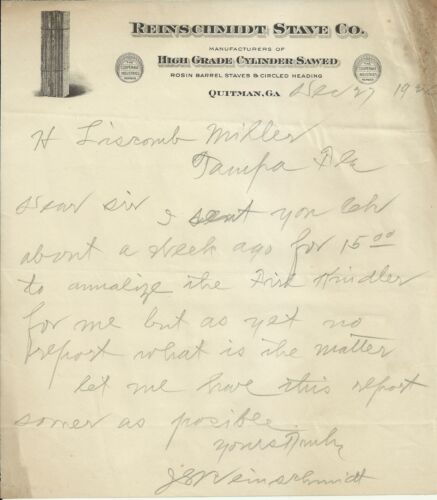 REINSCHMIDT STAVE CO.
MANUFACTURERS OF
HIGH GRADE CYLINDER SAWED
ROSIN BARREL STAVES & CIRCLED HEADING
QUITMAN, GA Dec 27 19
H Liscomb Miller
Tampa Fla
Dear sir I sent you Ck
about a week ago for 15 00
to annalize the Fire Kindler
for me but as yet no
report what is the matter
let me have this report
somer as posible
Yours truly
J B Reinschmidt